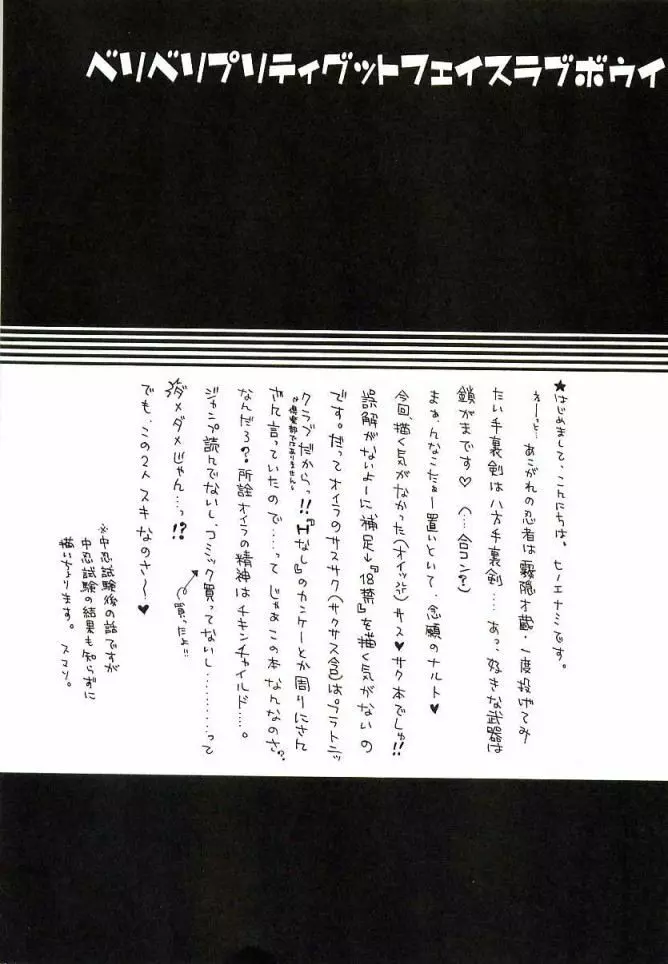 ベリベリプリティグットフェイスラブボウイ
★はじめまして、こんにちは。ヒノエナミです。
えーっと…あこがれの忍者は霧隠才蔵・一度投げてみ
たい手裏剣は八方手裏剣…あっ、好きな武器は
鎖がまです♡(…合コン?)
まぁ、んなこたぁー置いといて、念願のナルト♥
今回描く気がなかった(オイッ)サス♥サク本でしゅ!!
誤解がないよーに補足→『18禁』を描く気がないの
です。だってオイラのサスサク(サクサス含)はプラトニッ
クラブだからっ!!『Hなし』のカンケーとか周りにさん
※倶楽部ではありません。
ざん言っていたので……って じゃあこの本なんなのさ?
なんだろ?所詮オイラの精神はチキンチャイルド…。
ジャンプ読んでないし、コミック買ってないし………って
ダメダメじゃん…っ!?
買ったよ!!
でも、この2人スキなのさ〜♥
※中忍試験後の話ですが
中忍試験の結果も知らずに
描いちょります。スマソ。